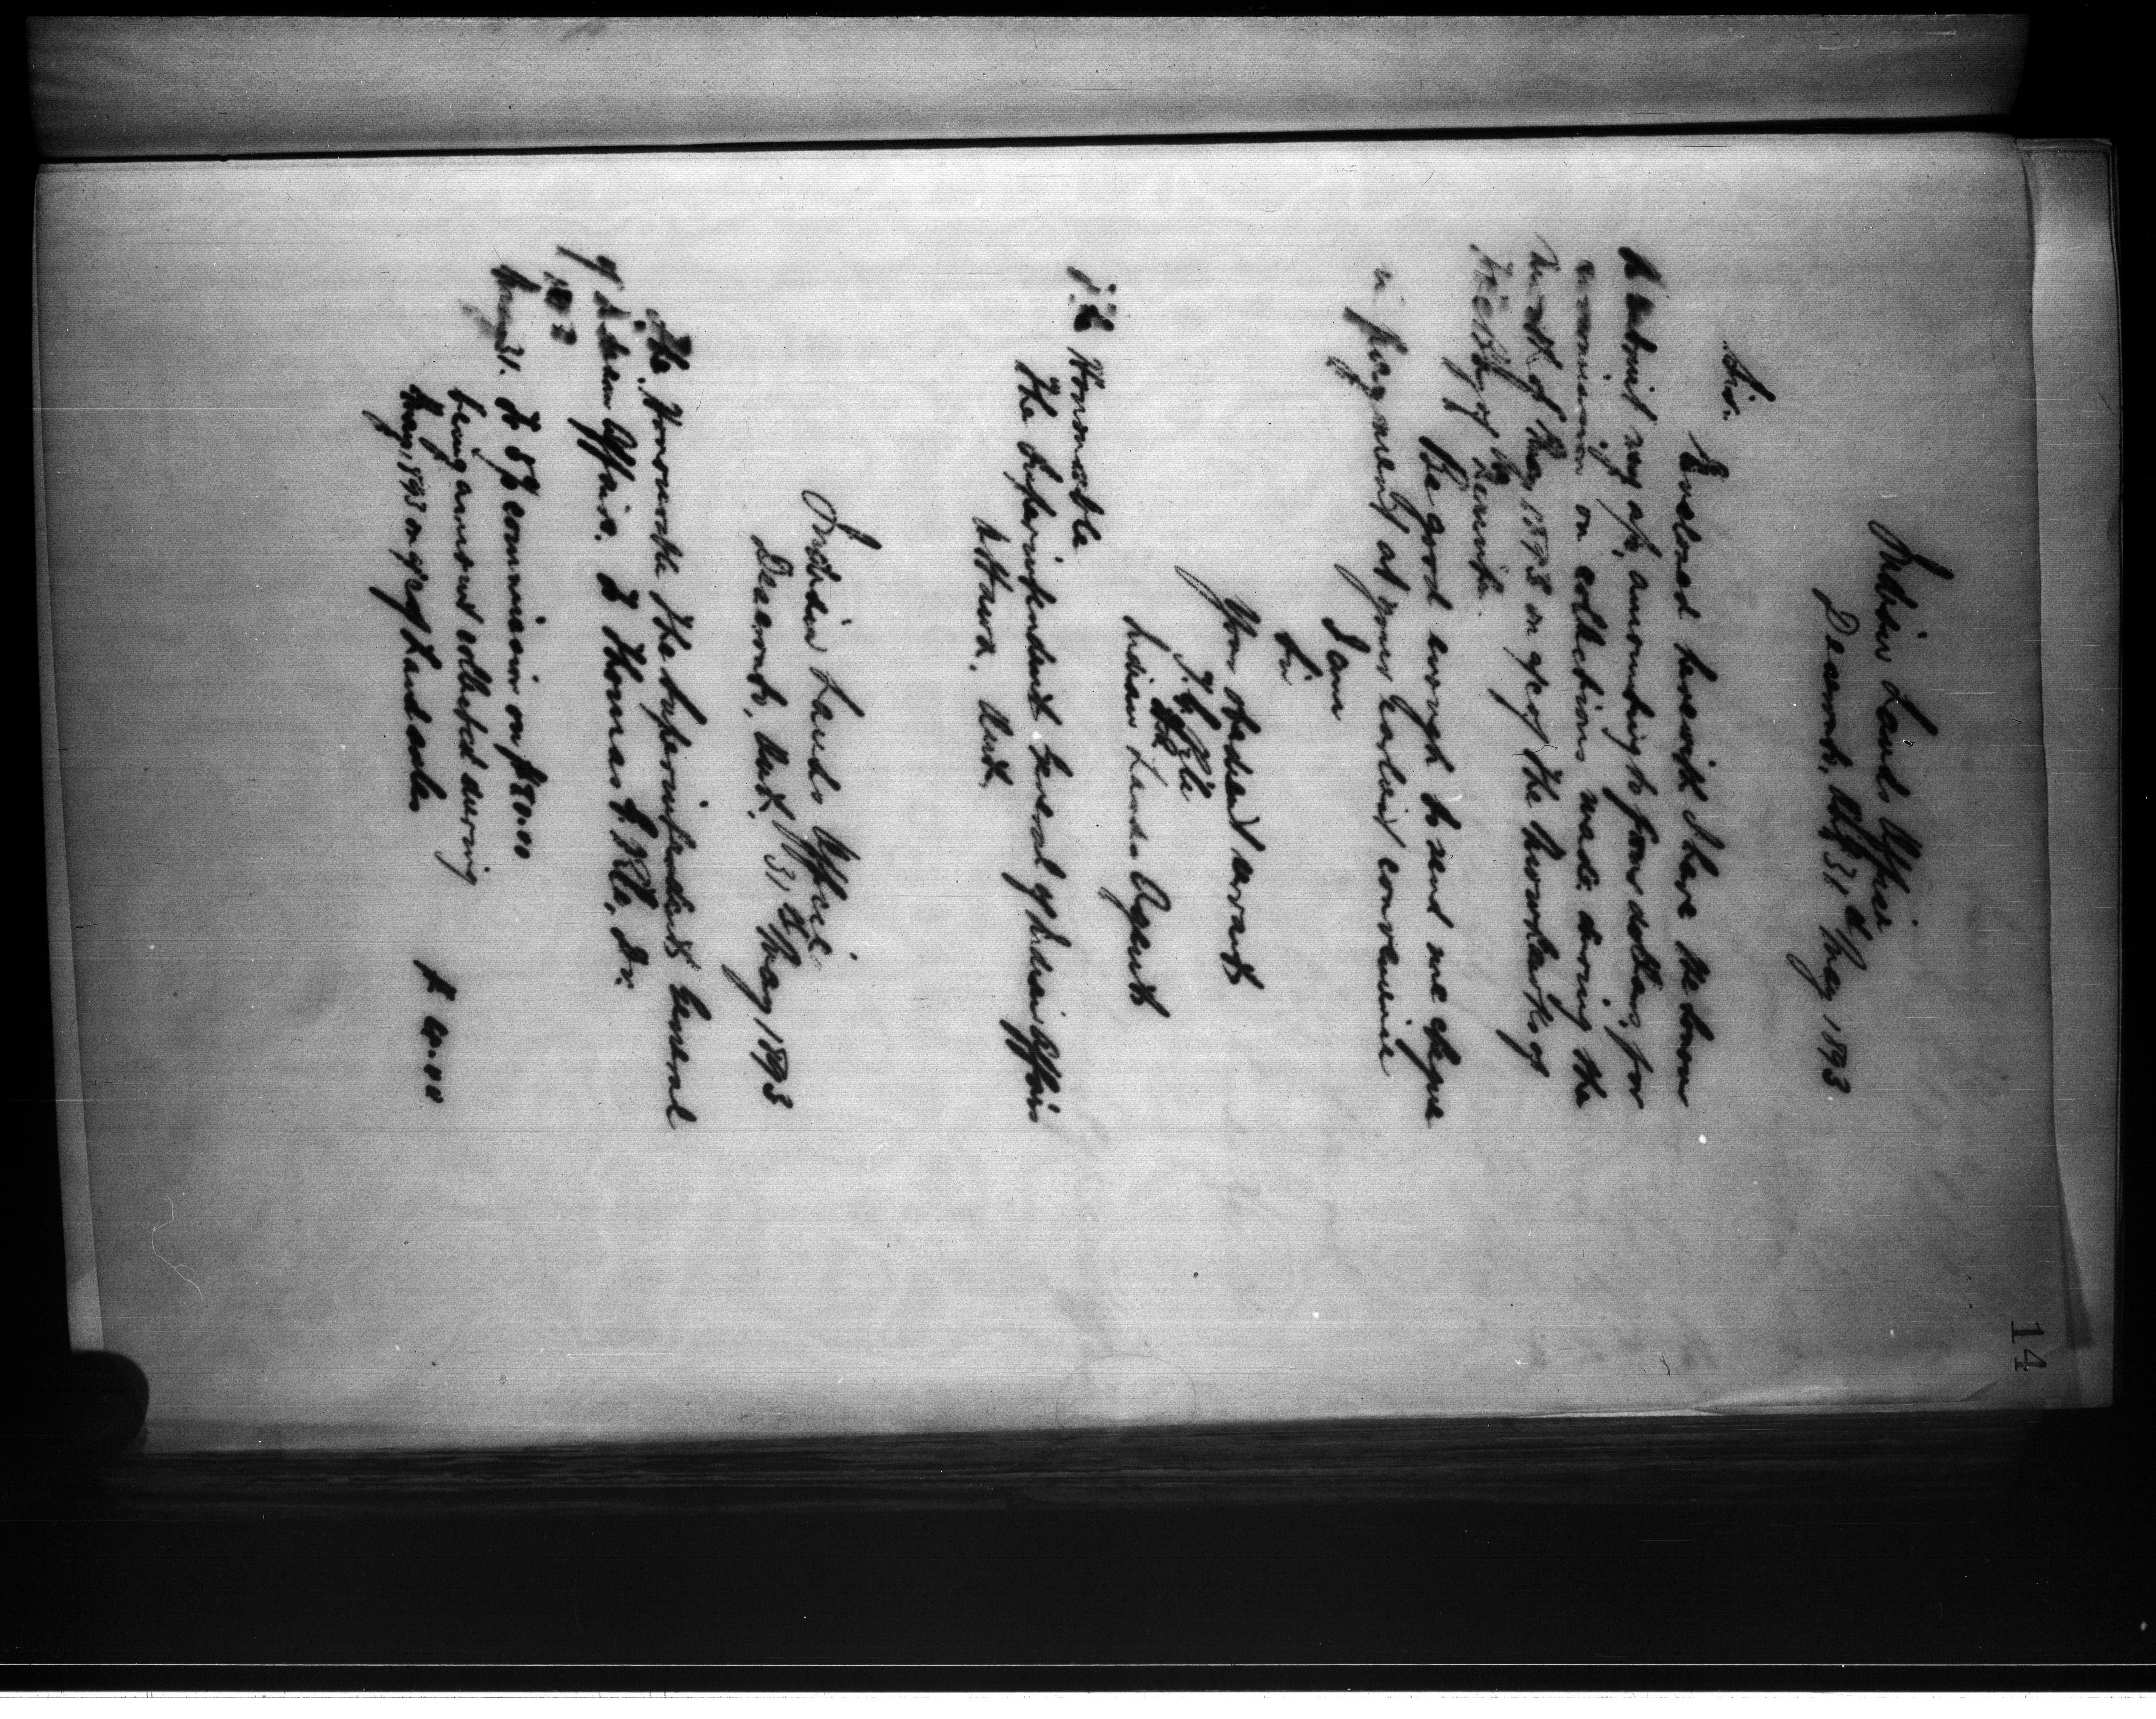 14
Indian Lands Office
Deseronto, Ont 31st May 1893
Sir.
Enclosed herewith I have the honor
to submit my a/c, amounting to four dollars, for
commission on collections made during the
month of May 1893 on a/c of the Mohawks of
the Bay of Quinté.
Be good enough to send me cheque
in payment at your earliest convenience
I am
Sir
Your obedient servant
Indian Lands Agent
The Honorable
The Superintendent General of Indian Affairs
Ottawa. Ont.
Indian Lands Office
Deseronto, Ont. 31st May 1893
The Honourable The Superintendent General
of Indian Affairs. To Thomas G. Pile, Dr.
1893
May 31. To 5% commission on $80.00
being amount collected during
May, 1893 on a/c of Land sales $ 4.00